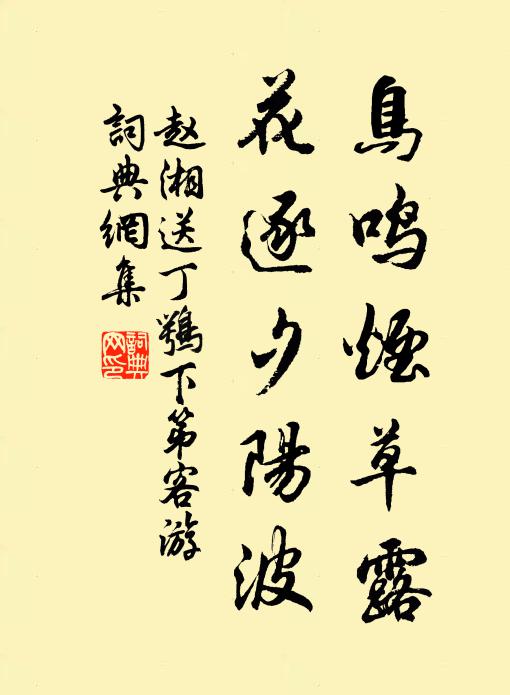 鳥鳴煙草露
花逐夕陽波
赵湘送丁鶚下第客游
詞典網集
詞典
网印